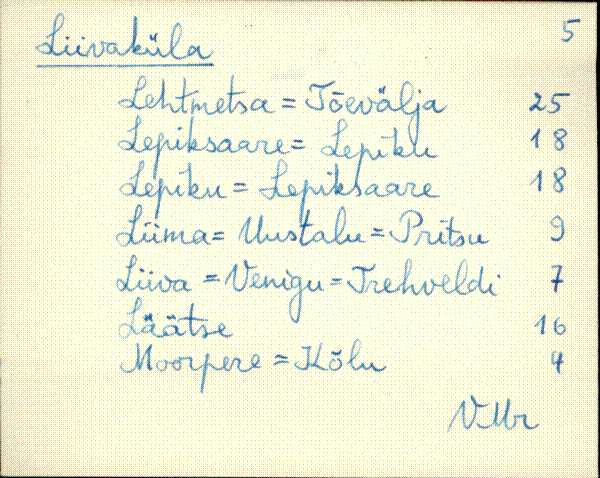 Liivaküla 5
Lehtmetsa = Tõevälja 25
Lepiksaare = Lepiku 18
Lepiku = Lepiksaare 18
Liima = Uustalu = Pritsu 9
Liiva = Venigu = Trehveldi 7
Läätse 16
Moorpere = Kõlu 4
V.Mr